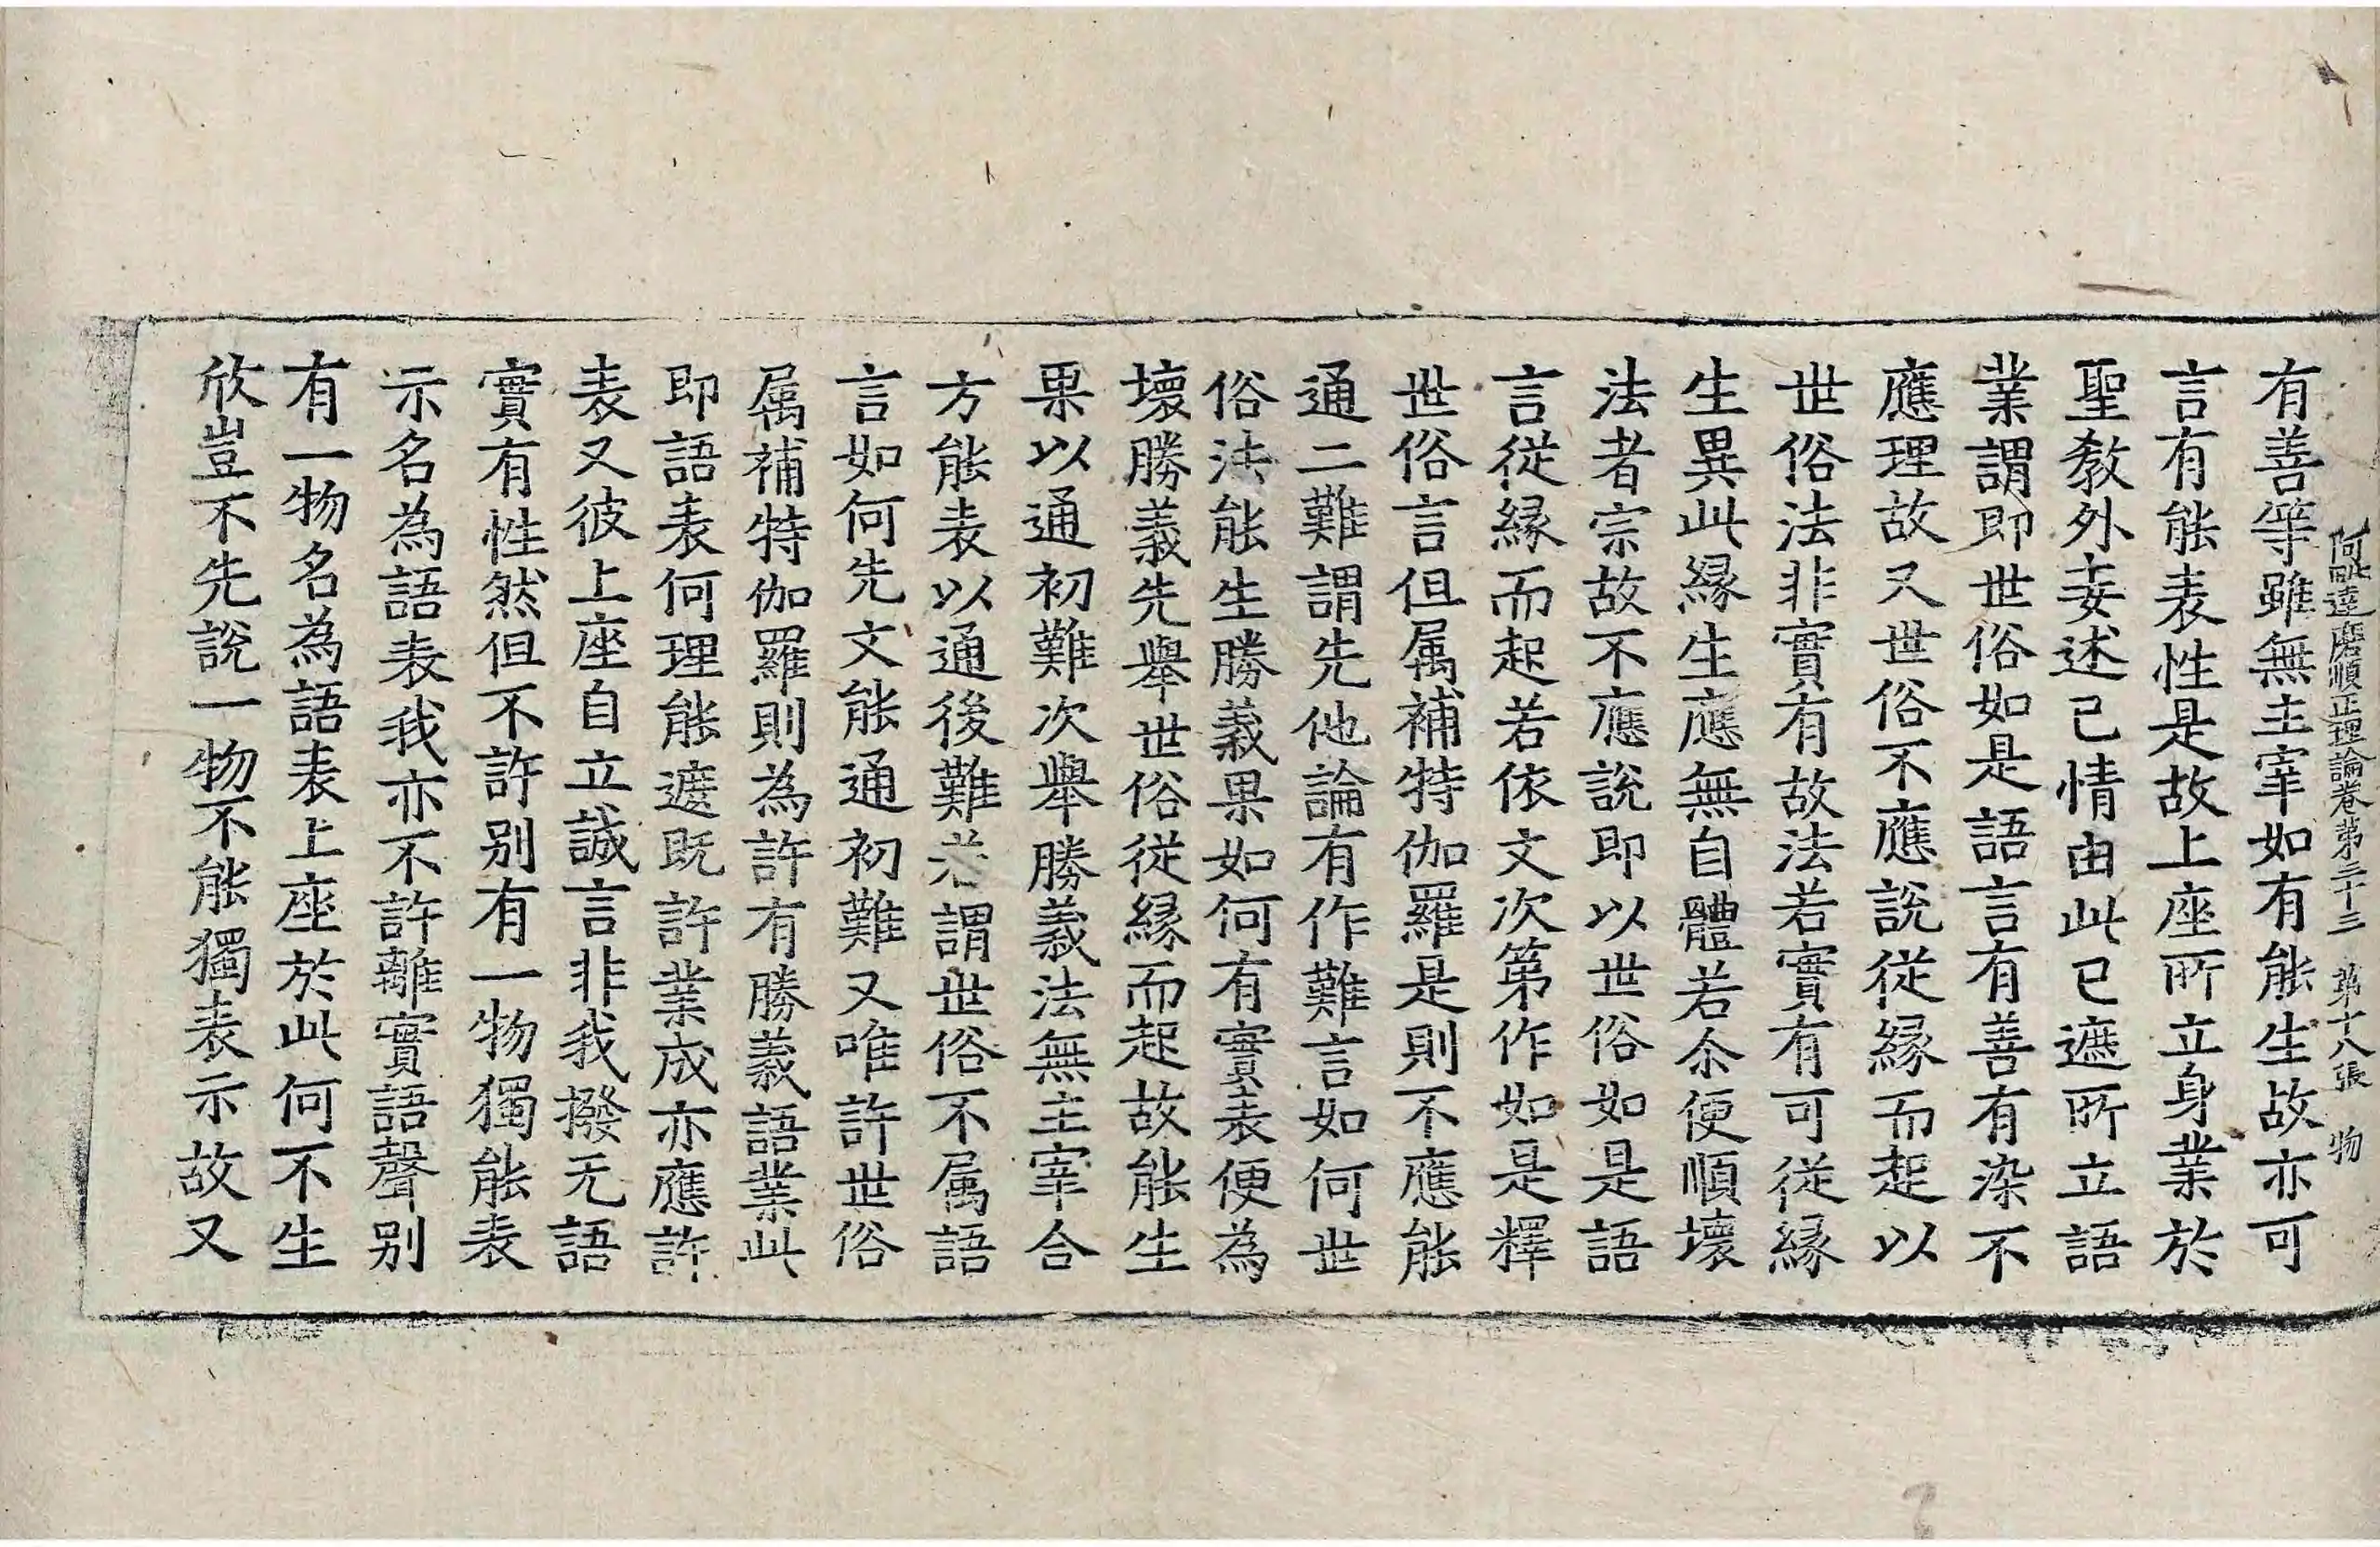 阿毗達磨順正理論卷第三十三 第十八張 物
有善等雖無主宰如有能生故亦可
言有能表性是故上座所立身業於
聖教外妄述己情由此已遮所立語
業謂即世俗如是語言有善有染不
應理故又世俗不應說從緣而起以
世俗法非實有故法若實有可從緣
生異此緣生應無自體若尒便順壞
法者宗故不應說即以世俗如是語
言從緣而起若依文次第作如是釋
世俗言但属補特伽羅是則不應能
通二難謂先他論有作難言如何世
俗法能生勝義果如何有實表便為
壞勝義先舉世俗從緣而起故能生
果以通初難次舉勝義法無主宰合
方能表以通後難若謂世俗不属語
言如何先文能通初難又唯許世俗
属補特伽羅則為許有勝義語業此
即語表何理能遮既許業成亦應許
表又彼上座自立誠言非我撥无語
實有性然但不許別有一物獨能表
示名為語表我亦不許離實語聲別
有一物名為語表上座於此何不生
欣豈不先說一物不能獨表示故又